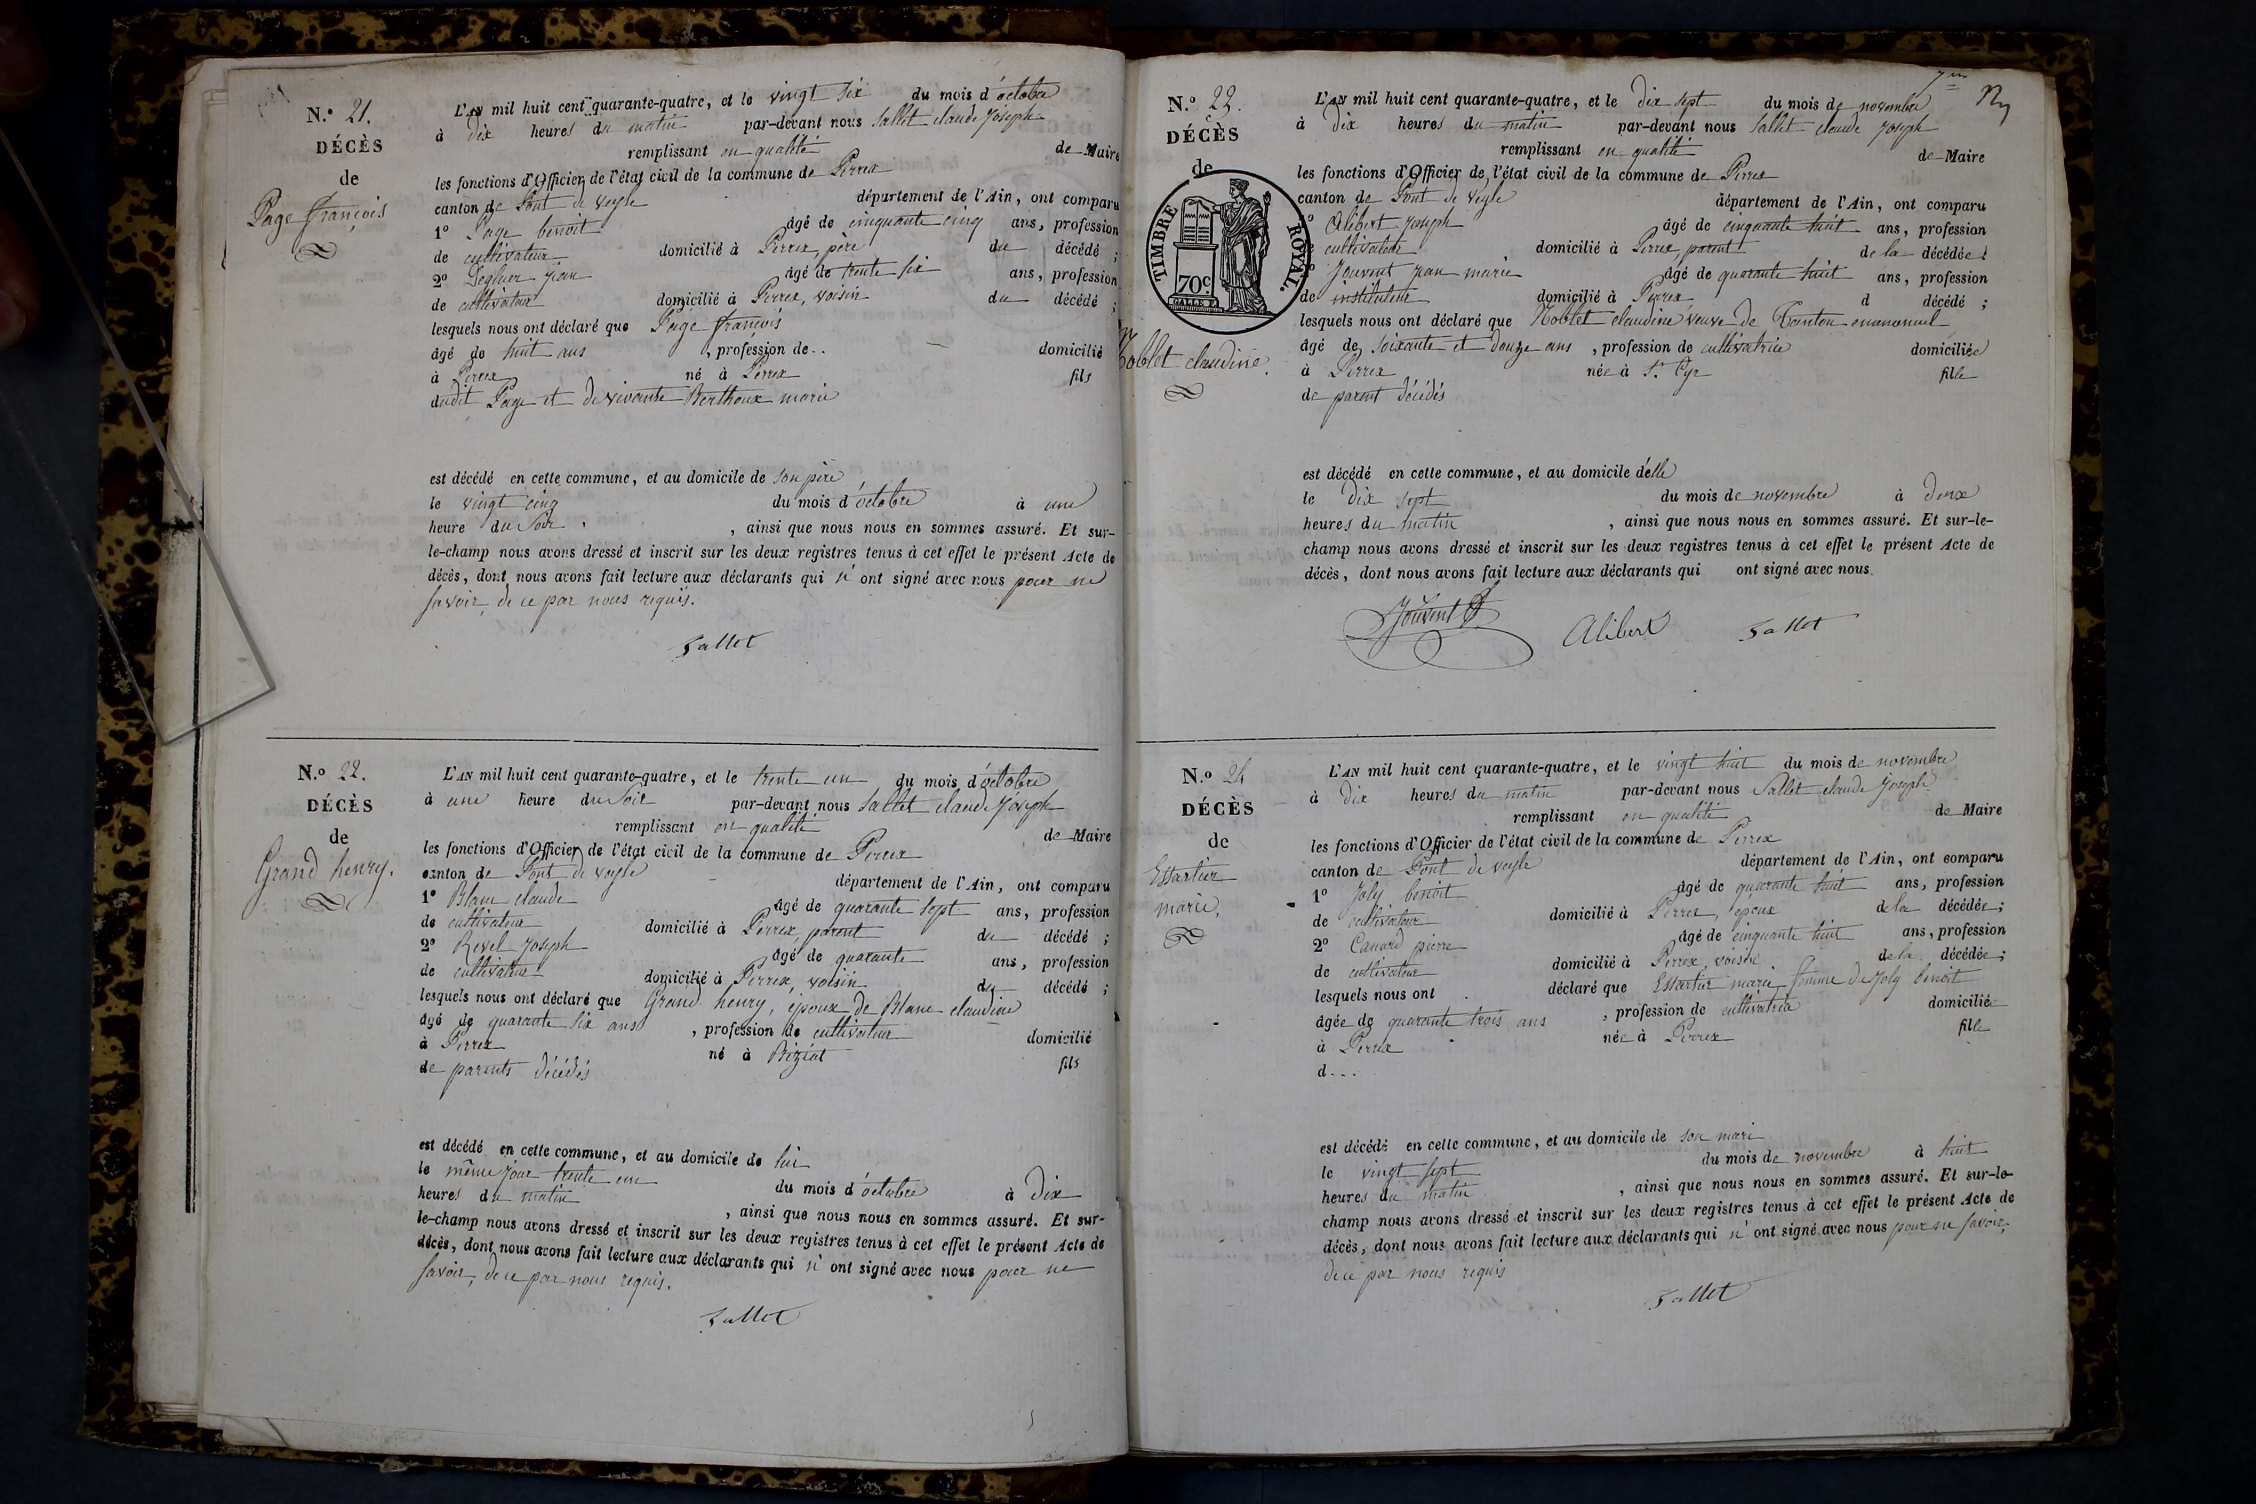 N.º 21.
DÉCÈS
de
Page françois
L'AN mil huit cent quarante-quatre, et le vingt six du mois d'octobre
à dix heures du matin par-devant nous Sallet claude Joseph
remplissant en qualité de Maire
les fonctions d'Officier de l'état civil de la commune de Perrex
canton de Pont de veyle département de l'Ain, ont comparu
1º Page benoit âgé de cinquante cinq ans, profession
de cultivateur domicilié à Perrex, père du décédé ;
2º jean âgé de trente six ans, profession
de cultivateur domicilié à Perrex, voisin du décédé ;
lesquels nous ont déclaré que Page françois
âgé de huit ans , profession de .. — domicilié
à Perrex né à Perrex fils
dudit Page et de vivante Berthoux marie
est décédé en cette commune, et au domicile de son père
le vingt cinq du mois d'octobre à une
heure du soir , ainsi que nous nous en sommes assuré. Et sur-
le-champ nous avons dressé et inscrit sur les deux registres tenus à cet effet le présent Acte de
décès, dont nous avons fait lecture aux déclarants qui n'ont signé avec nous pour ne
savoir, de ce par nous requis.
Sallet
N.º 22.
DÉCÈS
de
Grand henry.
L'AN mil huit cent quarante-quatre, et le trente un du mois d'octobre
à une heure du soir par-devant nous Sallet claude Joseph
remplissant en qualité de Maire
les fonctions d'Officier de l'état civil de la commune de Perrex
canton de Pont de veyle département de l'Ain, ont comparu
1º Blanc claude âgé de quarante sept ans, profession
de cultivateur domicilié à Perrex, parent du décédé ;
2º Revel Joseph âgé de quarante ans, profession
de cultivateur domicilié à Perrex, voisin du décédé ;
lesquels nous ont déclaré que Grand henry, époux de Blanc claudine
âgé de quarante six ans , profession de cultivateur domicilié
à Perrex né à Biziat fils
de parents décédés
est décédé en cette commune, et au domicile de lui
le même jour trente un du mois d'octobre à dix
heures du matin , ainsi que nous nous en sommes assuré. Et sur-
le-champ nous avons dressé et inscrit sur les deux registres tenus à cet effet le présent Acte de
décès, dont nous avons fait lecture aux déclarants qui n'ont signé avec nous pour ne
savoir, de ce par nous requis.
Sallet
N.º 23.
DÉCÈS
de
TIMBRE ROYAL.
70c.
Noblet claudine.
L'AN mil huit cent quarante-quatre, et le dix sept du mois de novembre
à dix heures du matin par-devant nous Sallet claude Joseph
remplissant en qualité de Maire
les fonctions d'Officier de l'état civil de la commune de Perrex
canton de Pont de veyle département de l'Ain, ont comparu
Alibert Joseph âgé de cinquante huit ans, profession
cultivateur domicilié à Perrex, parent de la décédée ;
Jouvent jean marie âgé de quarante huit ans, profession
de instituteur domicilié à Perrex d décédé ;
lesquels nous ont déclaré que Noblet claudine veuve de emanuel
âgé de soixante et douze ans , profession de cultivatrice domiciliée
à Perrex née à St. Cyr fille
de parent décédés
est décédé en cette commune, et au domicile d'elle
le dix sept du mois de novembre à deux
heures du matin , ainsi que nous nous en sommes assuré. Et sur-le-
champ nous avons dressé et inscrit sur les deux registres tenus à cet effet le présent Acte de
décès, dont nous avons fait lecture aux déclarants qui ont signé avec nous.
Jouvent Alibert Sallet
N.º 24
DÉCÈS
de
Estartier
marie.
L'AN mil huit cent quarante-quatre, et le vingt huit du mois de novembre
à dix heures du matin par-devant nous Sallet claude Joseph
remplissant en qualité de Maire
les fonctions d'Officier de l'état civil de la commune de Perrex
canton de Pont de veyle département de l'Ain, ont comparu
1º Joly benoit âgé de quarante huit ans, profession
de cultivateur domicilié à Perrex, époux de la décédée ;
2º Canard pierre âgé de cinquante huit ans, profession
de cultivateur domicilié à Perrex, voisin de la décédée ;
lesquels nous ont déclaré que Estartier marie, femme de Joly benoit
âgée de quarante trois ans , profession de cultivatrice domiciliée
à Perrex née à Perrex fille
d...
est décédé en cette commune, et au domicile de son mari
le vingt sept du mois de novembre à huit
heures du matin , ainsi que nous nous en sommes assuré. Et sur-le-
champ nous avons dressé et inscrit sur les deux registres tenus à cet effet le présent Acte de
décès, dont nous avons fait lecture aux déclarants qui n'ont signé avec nous pour ne savoir,
de ce par nous requis
Sallet